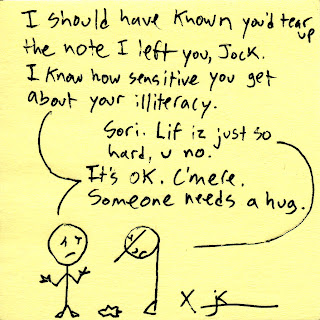 I should have known you'd tear up
the note I left you, Jock.
I know how sensitive you get
about your illiteracy.
Sori. Lif iz just so
hard, u no.
It's OK. C'mere.
Someone needs a hug.
X jk